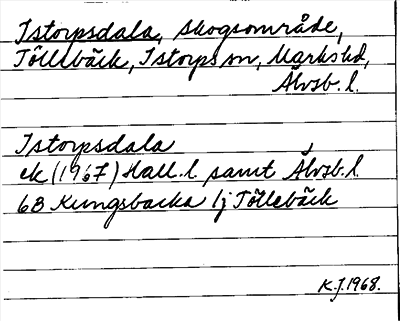 Istorpsdala, skogsområde,
Töllebäck, Istorps sn, Marks hd,
Älvsb. l.
Istorpsdala
ek (1967) Hall. l samt Älvsb. l.
6B Kungsbacka 1j Töllebäck
K.J. 1968.